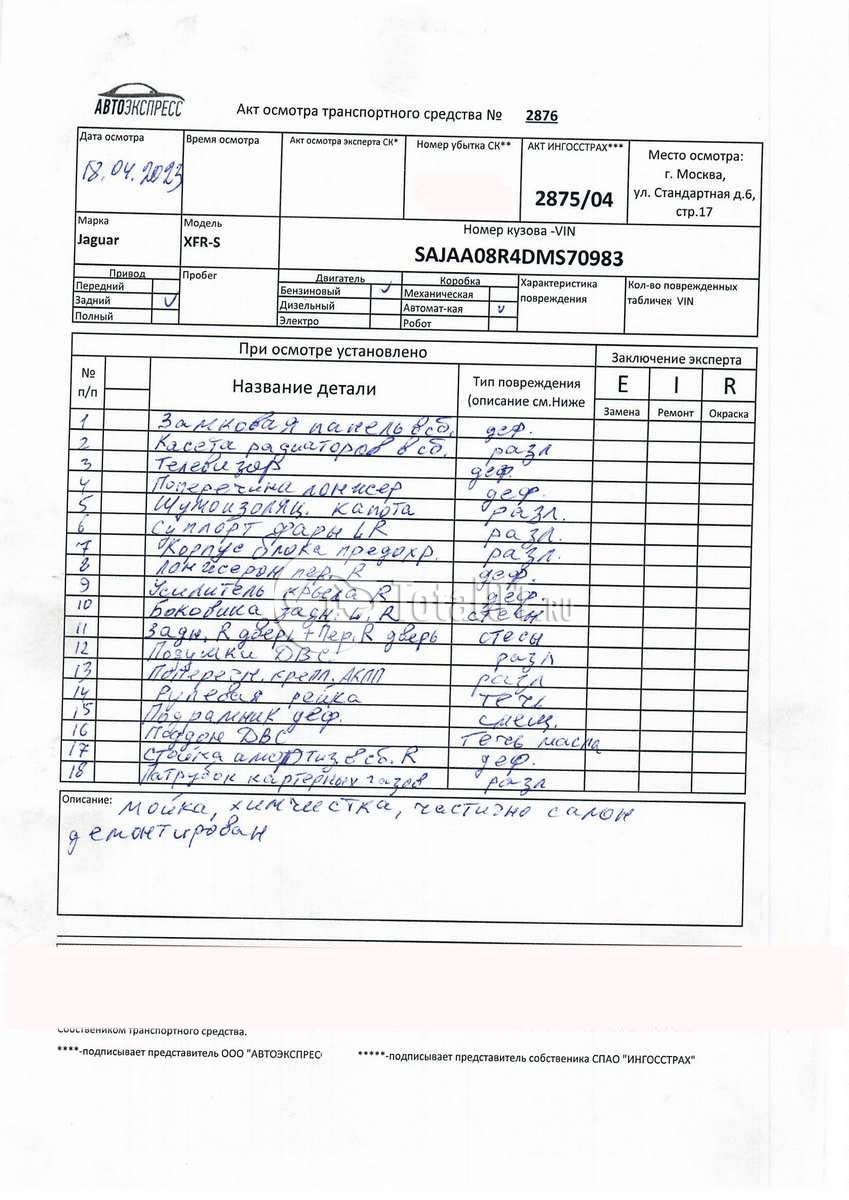 АВТОЭКСПРЕСС
Акт осмотра транспортного средства № 2876
Дата осмотра Время осмотра Акт осмотра эксперта СК* Номер убытка СК** АКТ ИНГОССТРАХ*** Место осмотра:
18.04.2023 г. Москва,
2875/04 ул. Стандартная д.6,
стр.17
Марка Модель Номер кузова -VIN
Jaguar XFR-S SAJAA08R4DMS70983
Привод Пробег Двигатель Коробка Характеристика Кол-во поврежденных
Передний Бензиновый Механическая повреждения табличек VIN
Задний Дизельный Автомат-кая
Полный Электро Робот
При осмотре установлено Заключение эксперта
№ Название детали Тип повреждения E I R
п/п (описание см.Ниже Замена Ремонт Окраска
1 Замковая панель в сб. деф.
2 Касета радиаторов в сб. разл
3 Телевизор деф.
4 Поперечина лонжер деф.
5 Шумоизоляц. капота разл.
6 Суппорт фары L R разл.
7 Корпус блока предохр. разл.
8 Лонжерон пер. R деф.
9 Усилитель крыла R деф.
10 Боковина задн. R
11 Задн. R дверь + Пер. R дверь стесы
12 ДВС разл
13 Попереч. крепл. АКПП разл
14 Рулевая рейка течь
15 Подрамник деф. смещ.
16 Поддон ДВС Течь масла
17 Стойка амортиз в сб. R деф.
18 Патрубок картерных газов разл
TotalR .RU
Описание: мойка, химчистка, частично салон
демонтирован
Собственником транспортного средства.
****-подписывает представитель ООО "АВТОЭКСПРЕСС *****-подписывает представитель собственика СПАО "ИНГОССТРАХ"